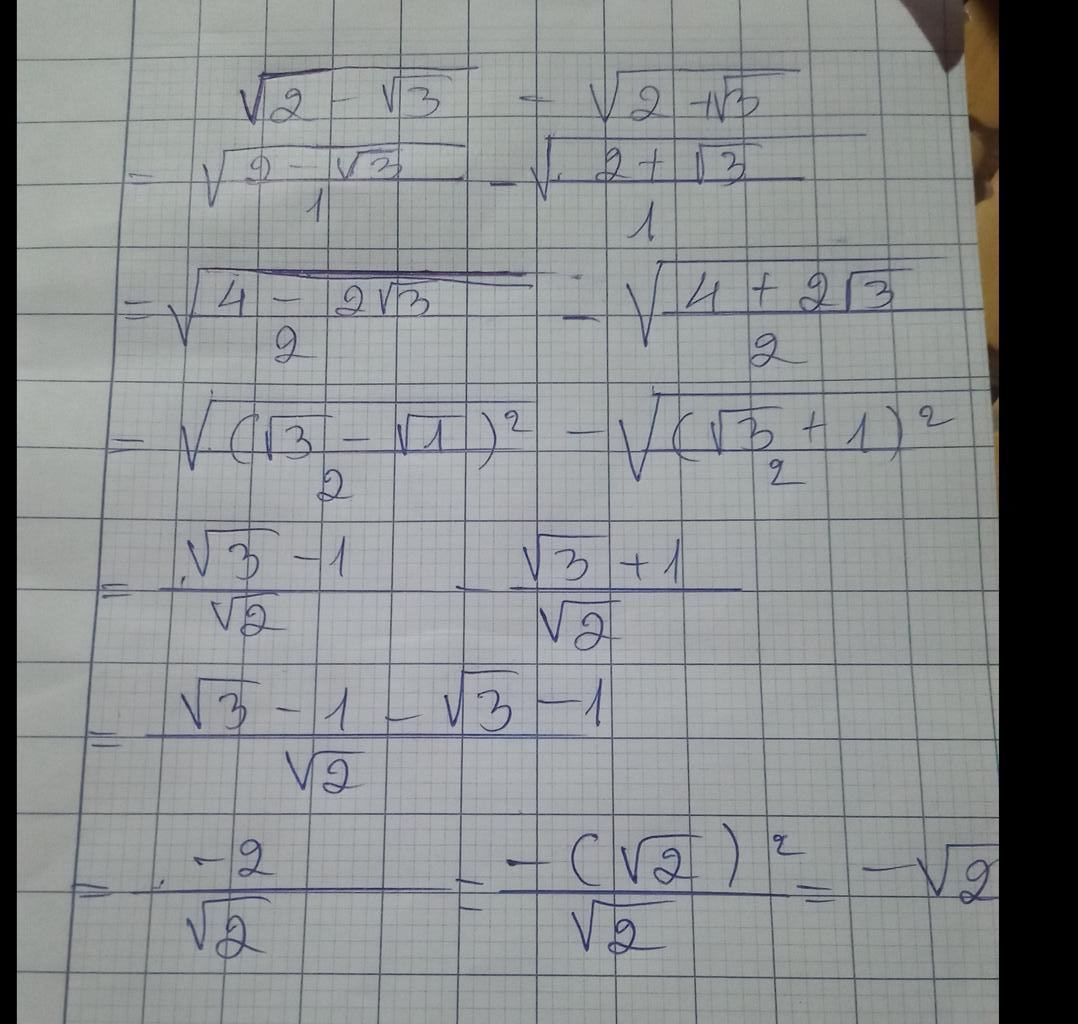 √(2 - √3) - √(2 - √3)
= √((2 - √3)/1) - √((2 + √3)/1)
= √((4 - 2√3)/2) - √((4 + 2√3)/2)
= √((√3 - √1)²/2) - √((√3 + 1)²/2)
= (√3 - 1)/√2 - (√3 + 1)/√2
= (√3 - 1 - √3 - 1)/√2
= -2/√2 = -(√2)²/√2 = -√2